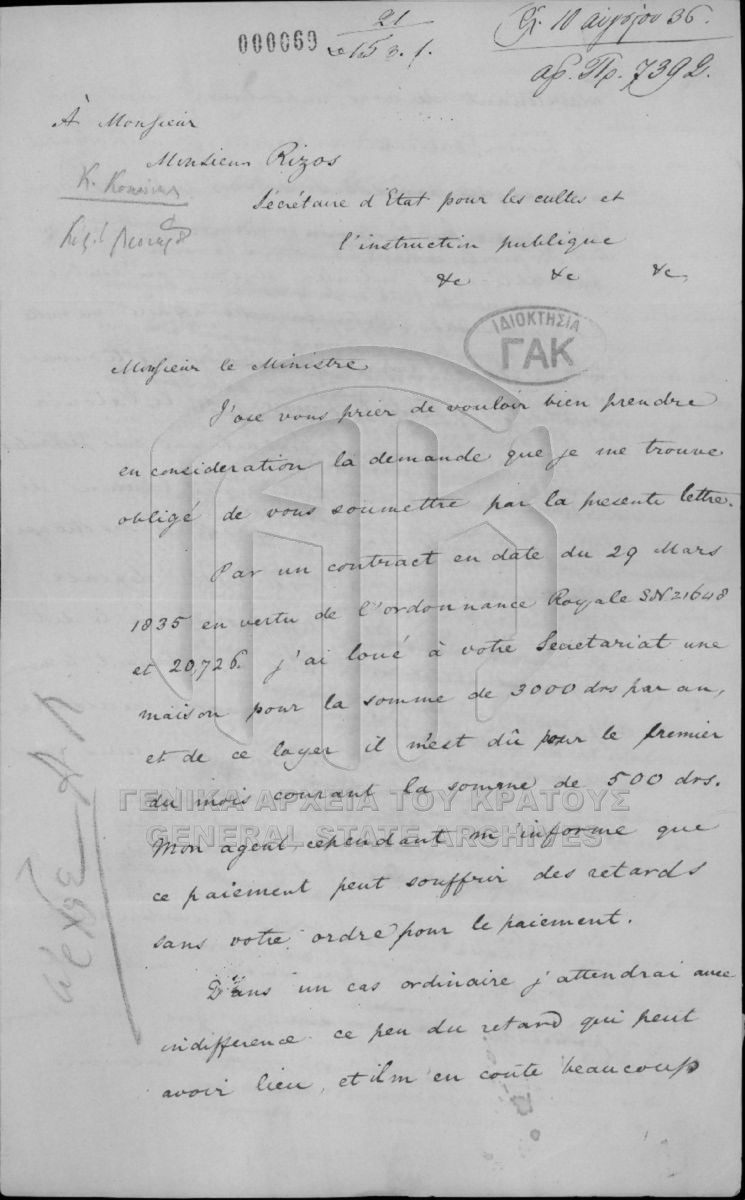 000069
21
15
10 αυγούστου 36.
αρ. Πρ. 7392.
À Monsieur
Monsieur Rizos
Sécrétaire d'Etat pour les cultes et
l'instruction publique
&c &c &c
ΙΔΙΟΚΤΗΣΙΑ
ΓΑΚ
Monsieur le Ministre
J'ose vous prier de vouloir bien prendre
en consideration la demande que je me trouve
obligé de vous soumettre par la presente lettre.
Par un contract en date du 29 Mars
1835 en vertu de l'ordonnance Royale 21648
et 20,726. j'ai loué à votre Secretariat une
maison pour la somme de 3000 drs par an,
et de ce loyer il m'est dû pour le premier
du mois courant la somme de 500 drs.
ΓΕΝΙΚΑ ΑΡΧΕΙΑ ΤΟΥ ΚΡΑΤΟΥΣ
GENERAL STATE ARCHIVES
Mon agent, cependant m'informe que
ce paiement peut souffrir des retards
sans votre ordre pour le paiement.
Dans un cas ordinaire j'attendrai avec
indifference ce peu du retard qui peut
avoir lieu, et il m'en coute beaucoup